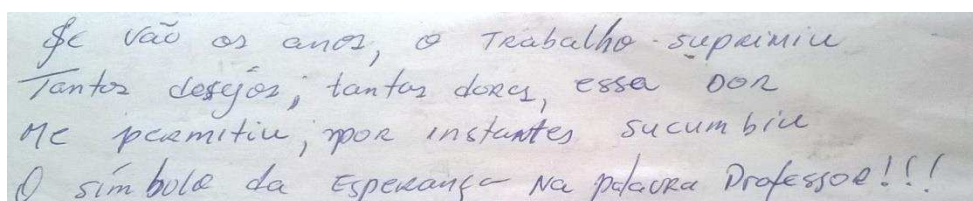 Se vão os anos, o Trabalho suprimiu
Tantos desejos; tantas dores, essa DOR
Me permitiu; por instantes sucumbiu
O símbolo da Esperança Na palavra Professor!!!